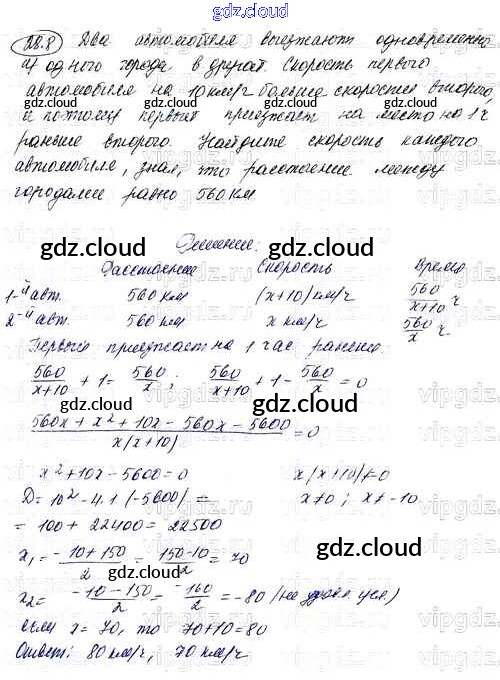 gdz.cloud
28.8 Два автомобиля выезжают одновременно
из одного города в другой. Скорость первого
автомобиля на 10 км/ч больше скорости второго,
и поэтому первый приезжает на место на 1 ч
раньше второго. Найдите скорость каждого
автомобиля, зная, что расстояние между
городами равно 560 км
gdz.cloud
Решение:
Расстояние Скорость Время
1-й авт. 560 км (x+10) км/ч 560/(x+10) ч
2-й авт. 560 км x км/ч 560/x ч
Первый приезжает на 1 час раньше.
560/(x+10) + 1 = 560/x ; 560/(x+10) + 1 - 560/x = 0
(560x + x² + 10x - 560x - 5600)/(x(x+10)) = 0
x² + 10x - 5600 = 0 x(x+10)≠0
D = 10² - 4·1·(-5600) = x≠0 ; x≠-10
= 100 + 22400 = 22500
x₁ = (-10+150)/2 = (150-10)/2 = 70
x₂ = (-10-150)/2 = -160/2 = -80 (не удовл. усл)
если x = 70, то 70+10=80
Ответ: 80 км/ч, 70 км/ч